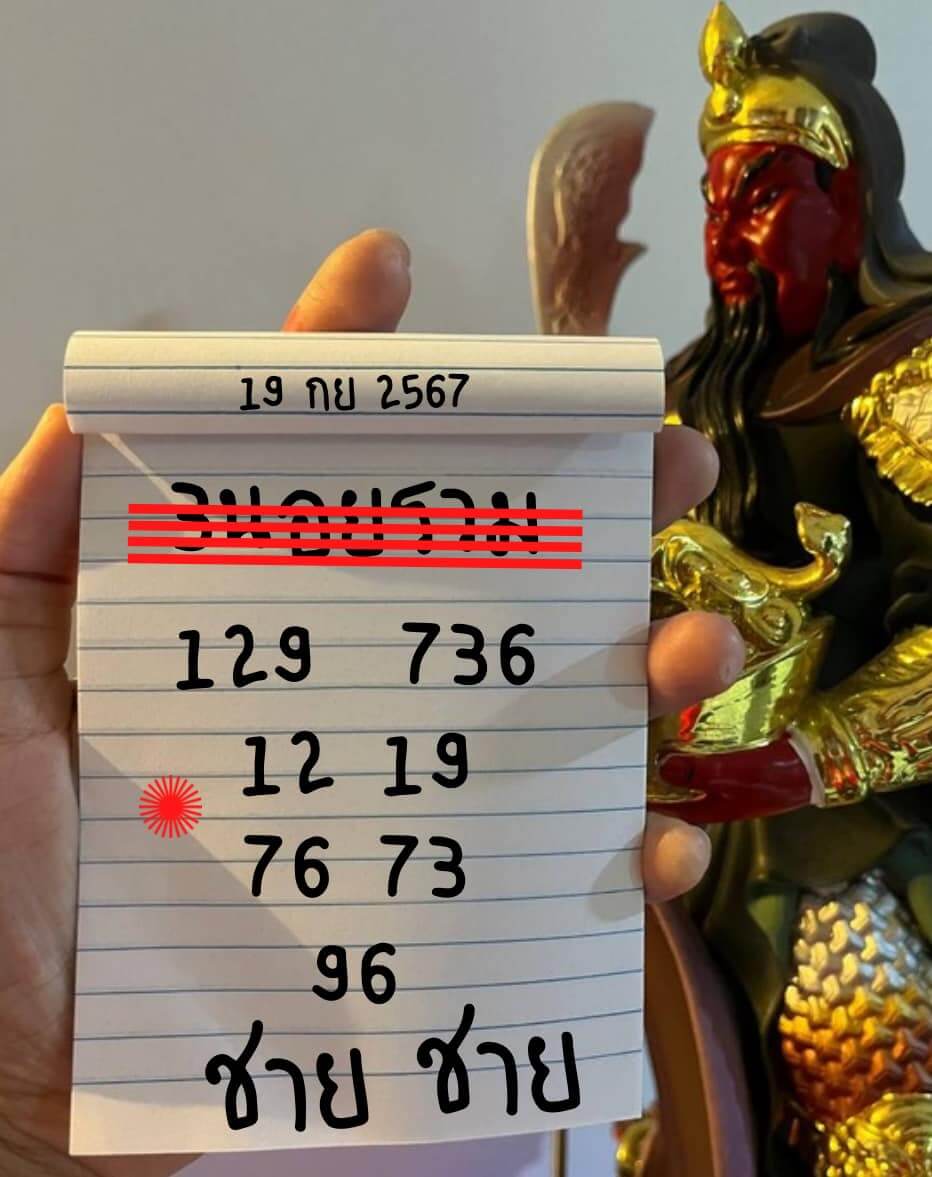 19 กย 2567
129 736
12 19
76 73
96
ชาย ชาย